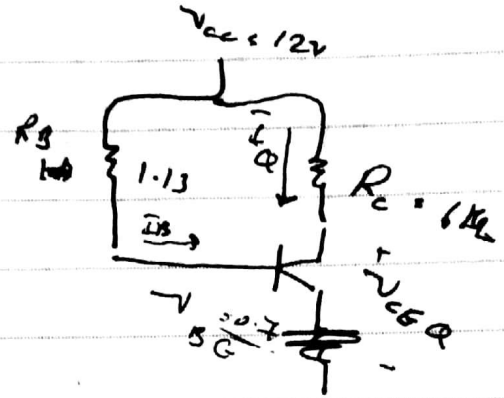 Vcc = 12v
RB
1.13
IQ
Rc = 6kΩ
IB
+
VCEQ
V BE = 0.7
-